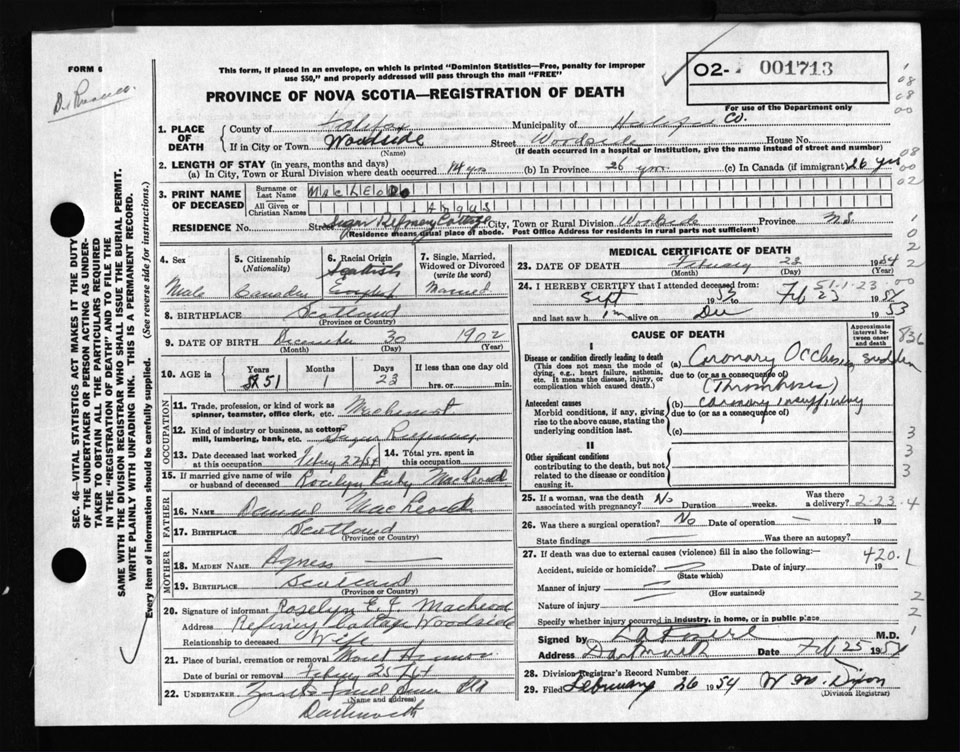 FORM 6
This form, if placed in an envelope, on which is printed "Dominion Statistics—Free, penalty for improper
use $50," and properly addressed will pass through the mail "FREE"
O2- 001713
For use of the Department only
PROVINCE OF NOVA SCOTIA—REGISTRATION OF DEATH
1. PLACE OF DEATH
County of Halifax Municipality of Halifax Co.
If in City or Town Woodside (Name) Street Woodside House No.
(If death occurred in a hospital or institution, give the name instead of street and number)
2. LENGTH OF STAY (in years, months and days)
(a) In City, Town or Rural Division where death occurred 14 yrs (b) In Province 26 yrs (c) In Canada (if immigrant) 26 yrs
3. PRINT NAME OF DECEASED
Surname or Last Name MacLEOD
All Given or Christian Names Angus
RESIDENCE No. Street Sugar Refinery Cottage City, Town or Rural Division Woodside Province N.S.
(Residence means usual place of abode. Post Office Address for residents in rural parts not sufficient)
SEC. 46—VITAL STATISTICS ACT MAKES IT THE DUTY
OF THE UNDERTAKER OR PERSON ACTING AS UNDER-
TAKER TO OBTAIN ALL THE PARTICULARS REQUIRED
IN THE "REGISTRATION OF DEATH" AND TO FILE THE
SAME WITH THE DIVISION REGISTRAR WHO SHALL ISSUE THE BURIAL PERMIT.
WRITE PLAINLY WITH UNFADING INK. THIS IS A PERMANENT RECORD.
Every item of information should be carefully supplied. (See reverse side for instructions.)
4. Sex
Male
5. Citizenship (Nationality)
Canadian
6. Racial Origin
Scottish
7. Single, Married, Widowed or Divorced (write the word)
Married
8. BIRTHPLACE Scotland
(Province or Country)
9. DATE OF BIRTH December 30 1902
(Month) (Day) (Year)
10. AGE in Years 51 Months 1 Days 23 If less than one day
hrs. or min.
OCCUPATION
11. Trade, profession, or kind of work as spinner, teamster, office clerk, etc. Machinist
12. Kind of industry or business, as cotton-mill, lumbering, bank, etc. Sugar Refinery
13. Date deceased last worked at this occupation Feb'y 22/54
14. Total yrs. spent in this occupation
15. If married give name of wife or husband of deceased Roselyn Ruby MacLeod
FATHER
16. Name Daniel MacLeod
17. Birthplace Scotland
(Province or Country)
MOTHER
18. MAIDEN NAME Agness —
19. BIRTHPLACE Scotland
(Province or Country)
20. Signature of informant Roselyn E. J. Macleod
Address Refinery Cottage Woodside
Relationship to deceased Wife
21. Place of burial, cremation or removal Mount Hermon
Date of burial or removal February 25
22. UNDERTAKER
(Name and address)
Dartmouth
MEDICAL CERTIFICATE OF DEATH
23. DATE OF DEATH February 23 1954
(Month) (Day) (Year)
24. I HEREBY CERTIFY that I attended deceased from:
51-1-23
Sept 1953 to Feb 23 1954
and last saw him alive on Dec 1953
CAUSE OF DEATH
Approximate interval between onset and death
I
Disease or condition directly leading to death
(This does not mean the mode of dying, e.g., heart failure, asthenia, etc. It means the disease, injury, or complication which caused death.)
(a) Coronary Occlusion sudden
due to (or as a consequence of)
(Thrombosis)
Antecedent causes
Morbid conditions, if any, giving rise to the above cause, stating the underlying condition last.
(b) Coronary insufficiency
due to (or as a consequence of)
(c)
II
Other significant conditions
contributing to the death, but not related to the disease or condition causing it.
25. If a woman, was the death associated with pregnancy? No Duration weeks. Was there a delivery?
2-23-4
26. Was there a surgical operation? No Date of operation — 19
State findings — Was there an autopsy?
27. If death was due to external causes (violence) fill in also the following:—
420.1
Accident, suicide or homicide? Date of injury 19
(State which)
Manner of injury
(How sustained)
Nature of injury
Specify whether injury occurred in industry, in home, or in public place
Signed by M.D.
Address Dartmouth Date Feb 25 1954
28. Division Registrar's Record Number
29. Filed February 26 1954 W. M. Dixon
(Division Registrar)